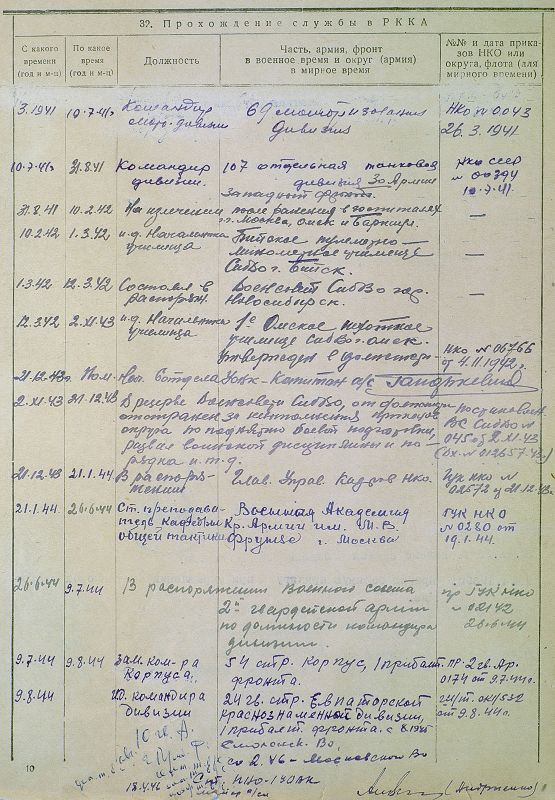 32. Прохождение службы в РККА
С какого времени (год и м-ц)
По какое время (год и м-ц)
Должность
Часть, армия, фронт в военное время и округ (армия) в мирное время
№№ и дата приказов НКО или округа, флота (для мирного времени)
3.1941 10.7.41г Командир 69 моторизованная НКО № 0043
дивизии дивизия 26.3.1941
10.7.41г 31.8.41 Командир 107 отдельная танковая НКО СССР
дивизии. дивизия 30 Армии
Западного фронта. 10.7.41.
31.8.41 10.2.42 На излечении после ранения в госпиталях —
г. Москва, Омск и
10.2.42 1.3.42 и.д. Начальника пулеметно- —
училища минометное училище
СибВО г. Бийск.
1.3.42 12.3.42 Состоял в Военсовет СибВО гор. —
распоряж. Новосибирск.
12.3.42 2.XI.43 и.д. Начальника 1е Омское пехотное
училища училище СибВО г. Омск. НКО № 06766
утвержден в должности от 4.11.1942 г.
2.XI.43 21.12.43 В резерве Военсовета СибВО, от должности
отстранен за невыполнения приказов ВС СибВО №
округа по поднятию боевой подготовки, 045 от 2.XI.43
развал воинской дисциплины и по-
рядка и т.д.
21.12.43 21.1.44 В распоря- Глав. Управ. Кадров НКО. ГУК НКО №
жении 02672 от 21.12.43
21.1.44 26.6.44 Ст. преподава- Военная Академия ГУК НКО
тель кафедры Кр. Армии им. М.В. № 0280 от
общей тактики Фрунзе г. Москва 19.1.44.
26.6.44 9.7.44 В распоряжении Военного совета пр ГУК НКО
2й гвардейской армии № 02142
по должности командира 26.6.44
дивизии.
9.7.44 9.8.44 Зам. ком-ра 54 стр. Корпус, 1 прибалт. пр. 2 гв. Ар.
Корпуса. фронта. 0174 от 9.7.44г.
9.8.44 И.д. командира 24 гв. стр. Евпаторской
дивизии Краснознаменной дивизии, от 9.8.44г.
1 прибалт фронта. с
Смоленск. Во,
со 2.46 – Московский Во
10 гв. А.
18.4.46
10
(Андриенко)